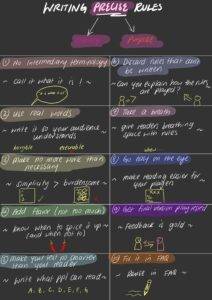 WRITING PRECISE RULES
Purpose
① No intermediary terminology
~ call it what it is! ~
② Use real words
~ write it so your audience understands
③ Make no more work than necessary
~ simplicity > burdensome ~
④ Add flavor (not too much)
~ know when to spice it up (and when not to)
⑤ make your text no smarter than your reader
~ write what ppl can read ~
A, B, C, D, E, F, G
Discard rules that can be broken
~ Can you explain how the rules are played? ~
Take a breath
~ give readers breathing space with rules
Go easy on the eye
~ making reading easier for your players
Get final version playtested
~ Feedback is gold ~
Fix it in FAQ
~ Advise in FAQ ~